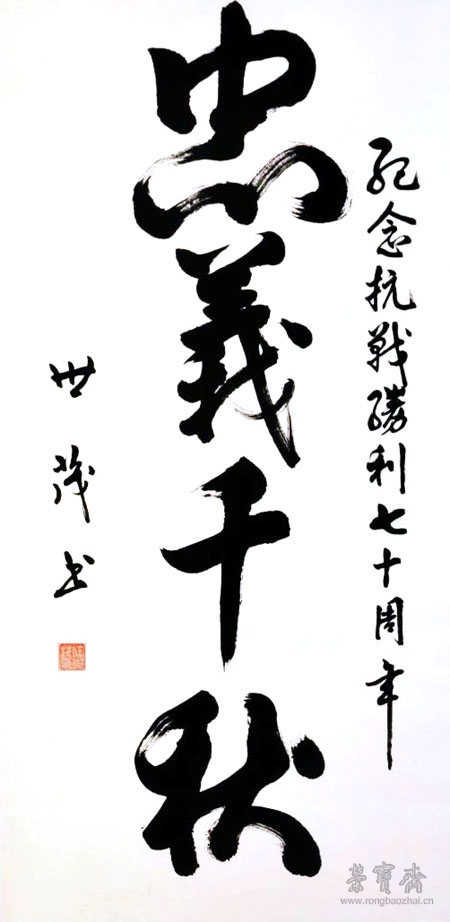 紀念抗戰勝利七十周年
忠義千秋
世茂书
榮寶齋
www.rongbaozhai.cn